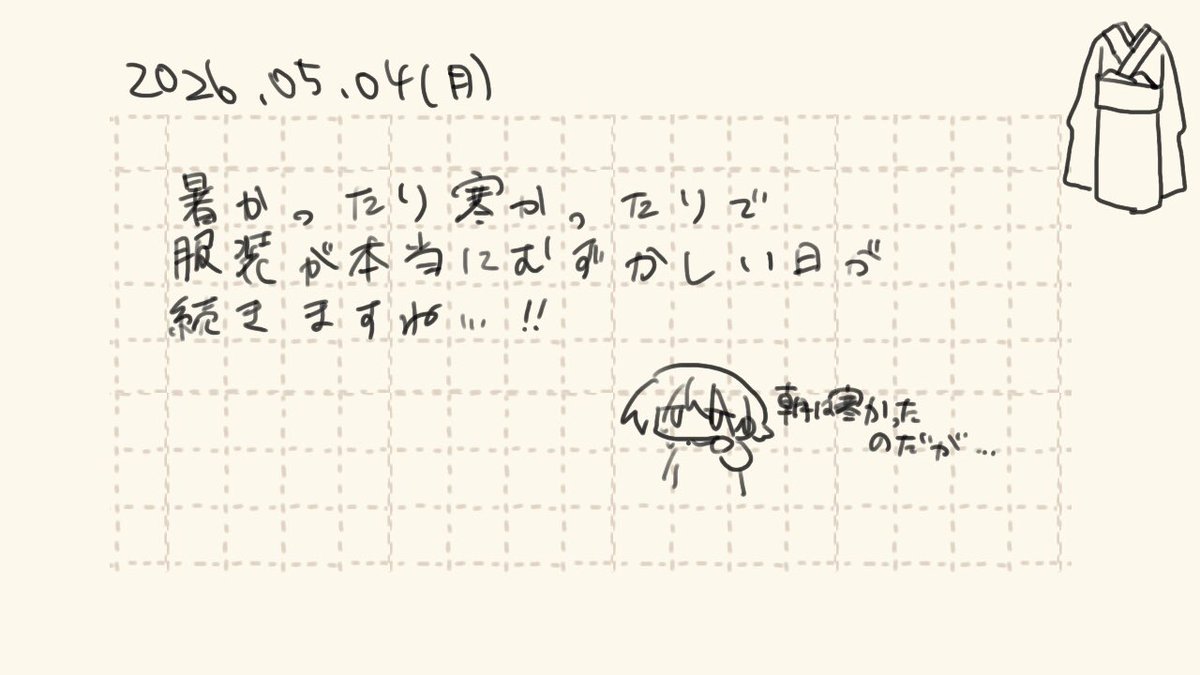 2026.05.04(月)
暑かったり寒かったりで
服装が本当にむずかしい日が
続きますね…!!
朝は寒かった
のだが…